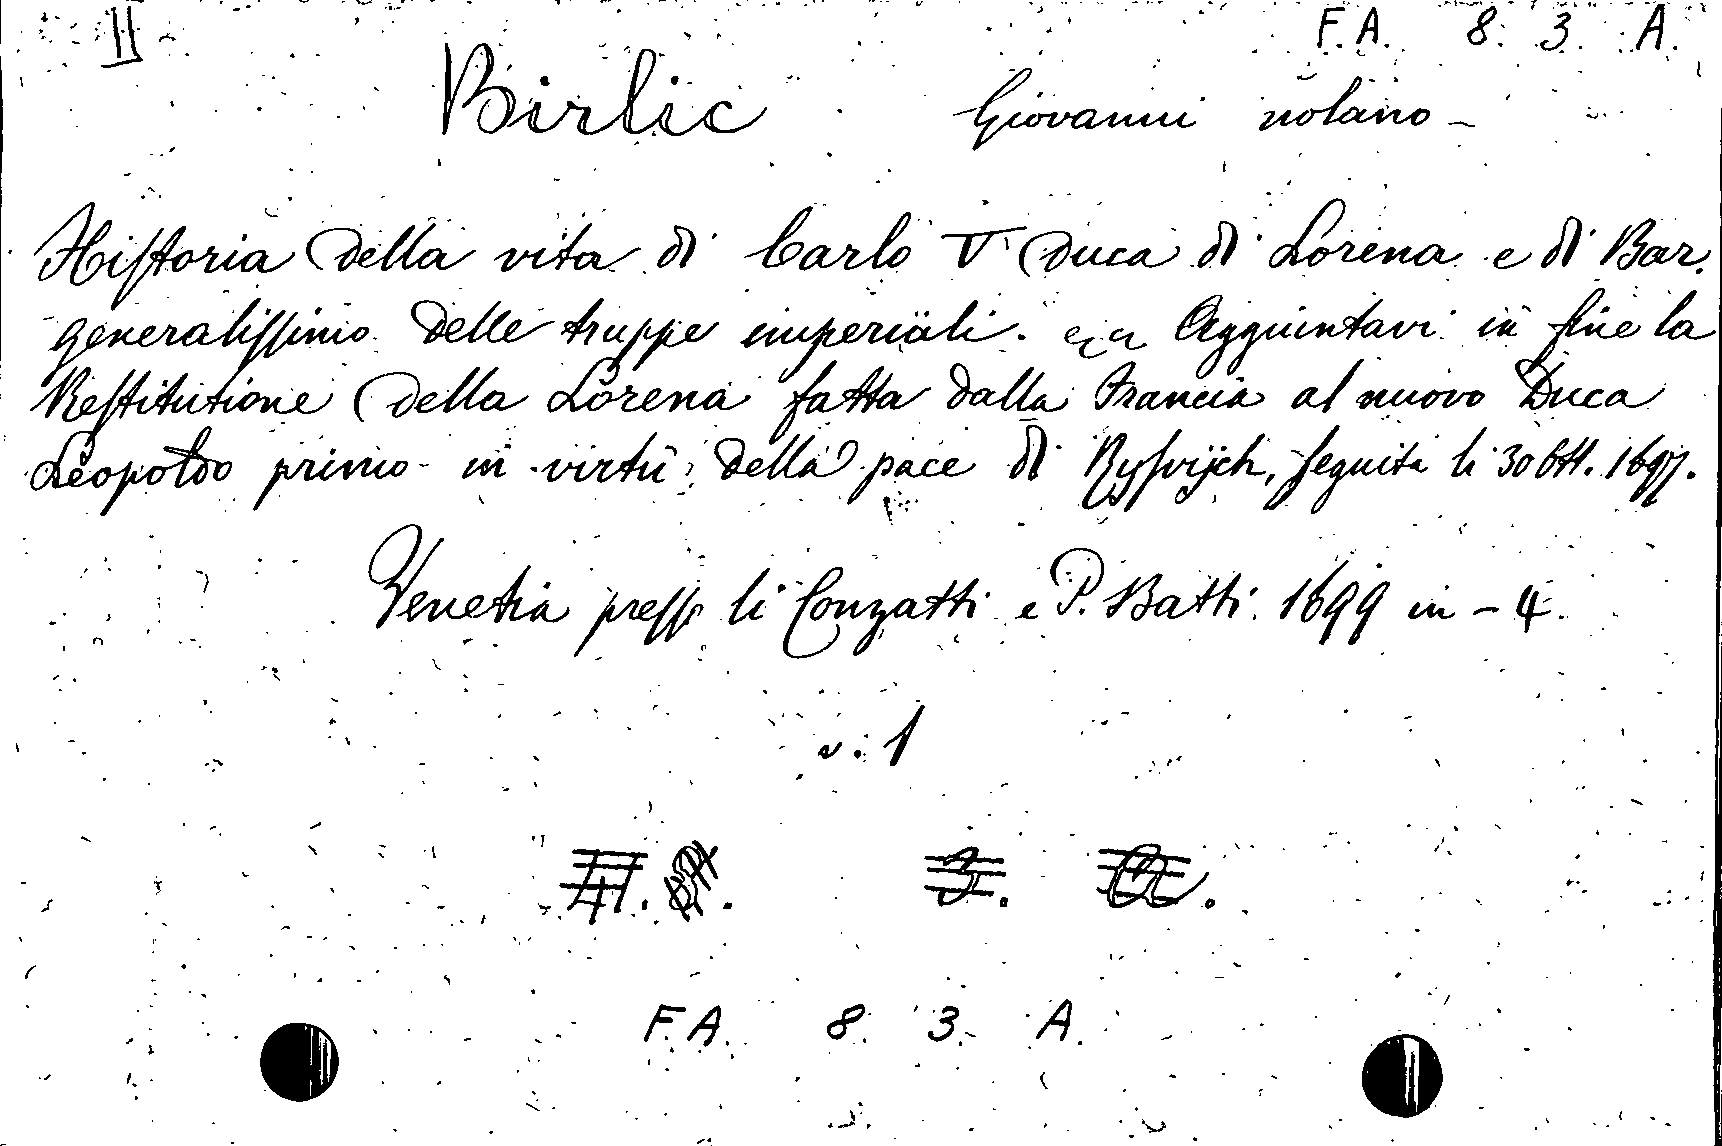 II F.A. 8. 3. A.
Birlic Giovanni nolano -
Historia della vita di Carlo V Duca di Lorena e di Bar.
generalissimo delle truppe imperiali. Aggiuntavi in fine la
Restitutione della Lorena fatta dalla Francia al nuovo Duca
Leopoldo primo in virtù della pace di Rysvijch, seguita li 30 Ott. 1697.
Venetia presso li Conzatti e P. Batti. 1699 in - 4.
v. 1
F.A. 8. 3. A.